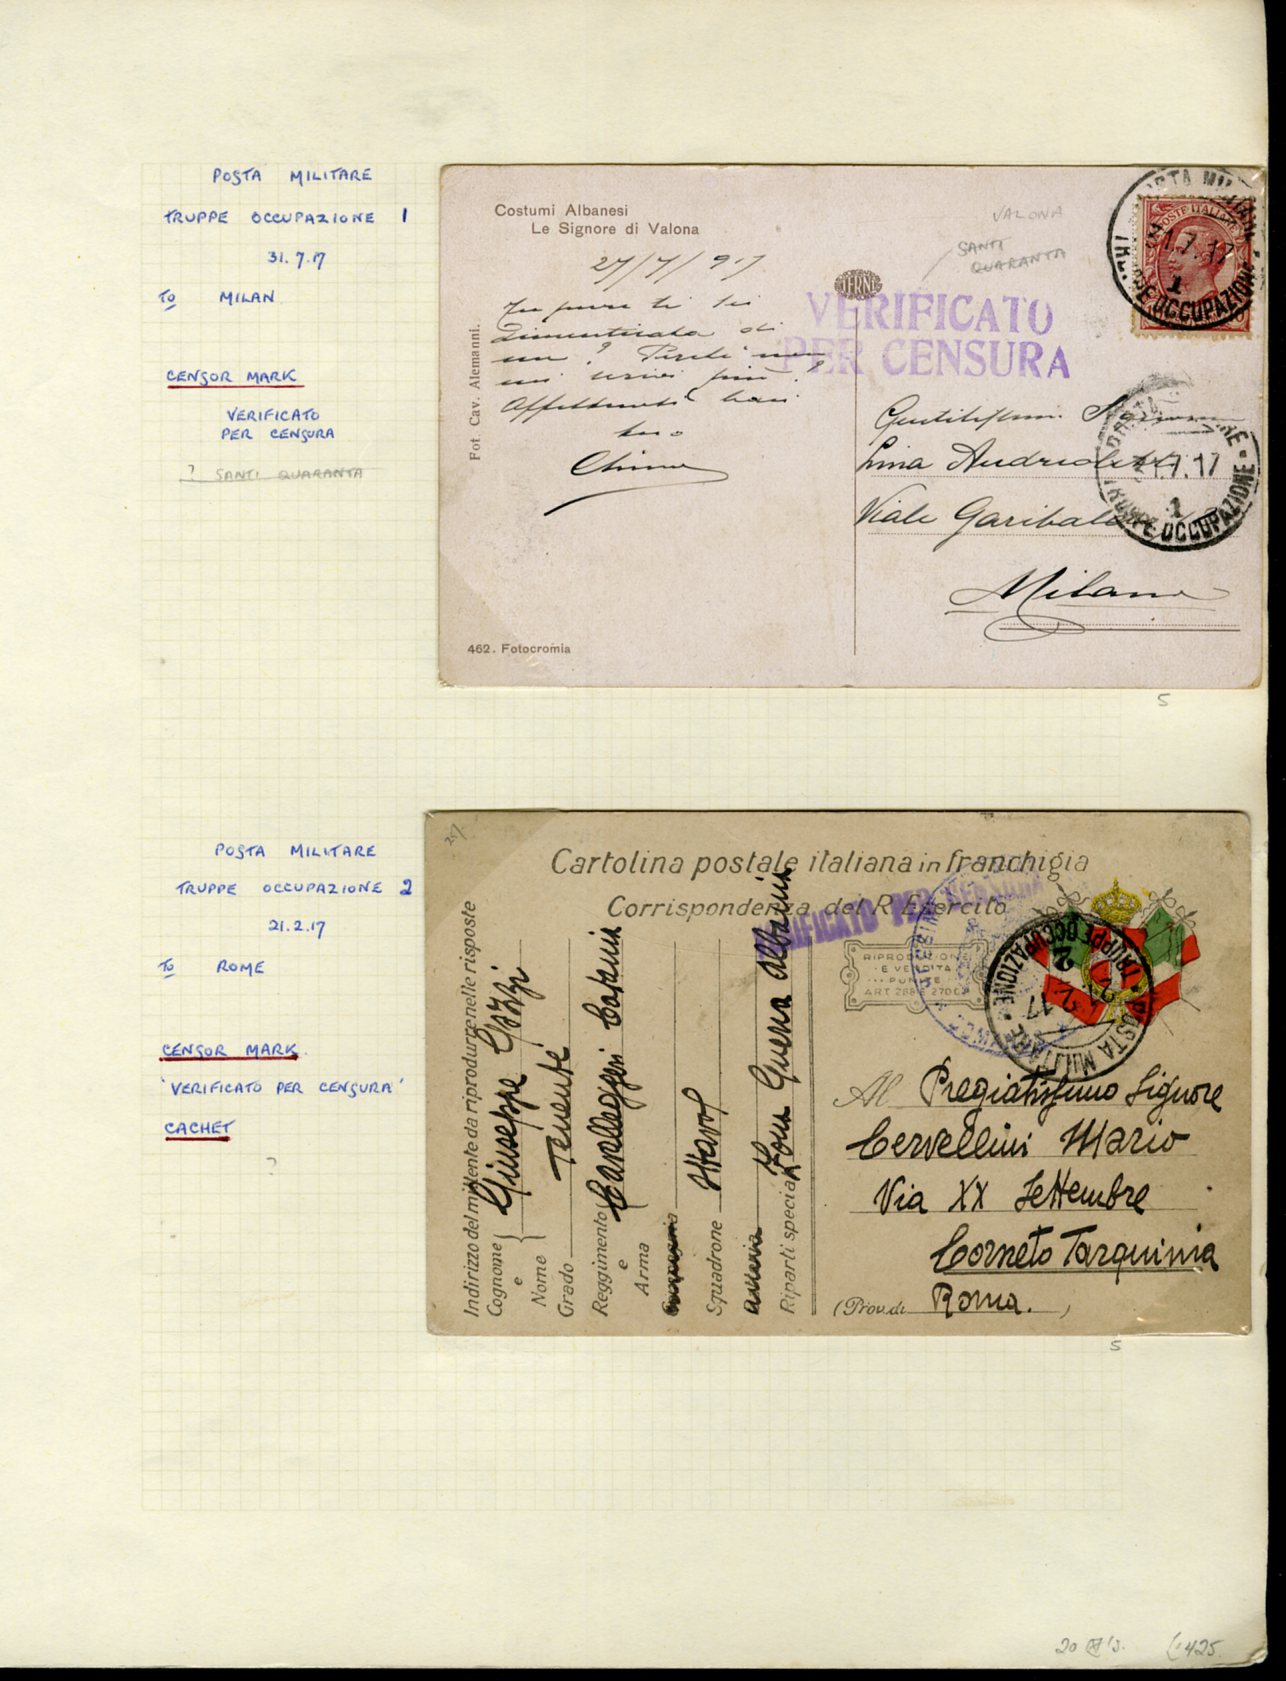 POSTA MILITARE
TRUPPE OCCUPAZIONE 1
31.7.17
TO MILAN
CENSOR MARK
VERIFICATO
PER CENSURA
? SANTI QUARANTA
Costumi Albanesi
Le Signore di Valona
27/7/917
Fot. Cav. Alemanni.
462. Fotocromia
VALONA
SANTI
QUARANTA
TERNI
VERIFICATO
PER CENSURA
POSTE ITALIANE
POSTA MILITARE
31.7.17
1
TRUPPE OCCUPAZIONE
Lina
Viale Garibaldi
Milano
POSTA MILITARE
31.7.17
1
TRUPPE OCCUPAZIONE
5
POSTA MILITARE
TRUPPE OCCUPAZIONE 2
21.2.17
TO ROME
CENSOR MARK
'VERIFICATO PER CENSURA'
CACHET
?
Cartolina postale italiana in franchigia
Corrispondenza del R. Esercito
VERIFICATO PER CENSURA
RIPRODUZIONE
E VENDITA
PUNITE
Indirizzo del mittente da riprodurre nelle risposte
Cognome
e
Nome
Giuseppe
Grado Tenente
Reggimento Cavalleggeri Catania
e
Arma
Squadrone
Riparti speciali Zona Guerra Albania
POSTA MILITARE
21.2.17
2
TRUPPE OCCUPAZIONE
Al Pregiatissimo Signore
Cervellini Mario
Via XX Settembre
Corneto Tarquinia
(Prov. di Roma.)
5
20
425